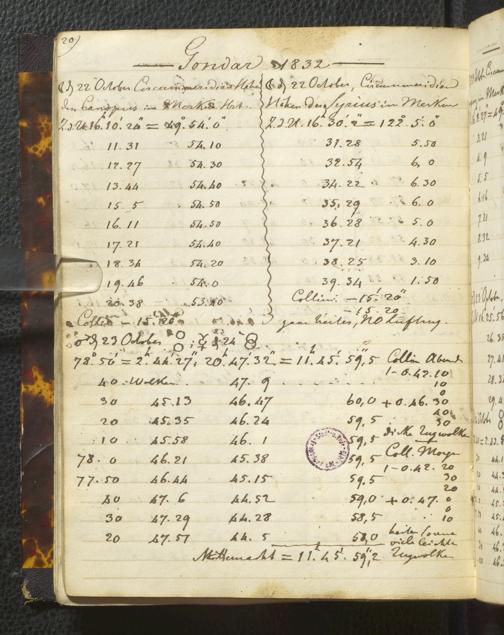 20)
Gondar 1832
☾ d 22 October Circummeridian Höhe
des Canopus im Merk. Hor.
Z.d.U. 16.10.24 = 49°.54.0"
11.31 54.10
12.27 54.30
13.44 54.40
15.5 54.50
16.11 54.50
17.21 54.40
18.34 54.20
19.46 54.0
20.38 53.40
Collim — 15.20
☾ d 22 October, Circummeridian
Höhen des Syrius im Merkur
Z.d.U. 16.30.2 = 122°.5.0
31.28 5.50
32.54 6.0
34.22 6.30
35.29 6.0
36.28 5.0
37.21 4.30
38.25 3.10
39.34 1.50
Collim: — 15.20"
— 15.20
ganz heiter, NO Luftzug
♂ d 23 October
78°.50' = 2h.44'.27", 20h.47'.32" = 11h.45'.59",5 Collim Abend
1-0.42.10
40 Wolken 47.9 10
0
30 45.13 46.47 60,0 + 0.46.30
40
20 45.35 46.24 59,5 30
10 45.58 46.1 59,5 dicke Zugwolken
78.0 46.21 45.38 59,5 Coll. Morgen
1-0.42.20
77.50 46.44 45.15 59,5 30
20
40 47.6 44.52 59,0 + 0.47.0
0
30 47.29 44.28 58,5 10
20 47.57 44.5 58,0 heitere Sonne
viele leichte
Mitternacht = 11h.45'.59",2 Zugwolken